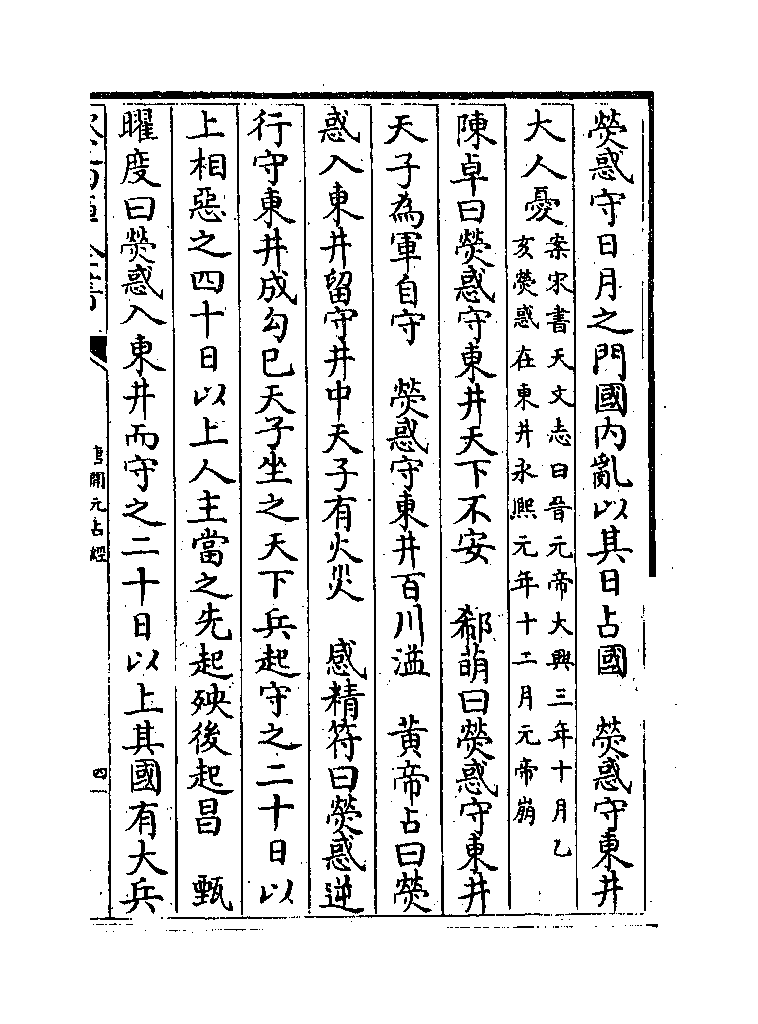 熒惑守日月之門國内亂以其日占國　熒惑守東井
大人憂案宋書天文志曰晉元帝大興三年十月乙
亥熒惑在東井永熙元年十二月元帝崩
陳卓曰熒惑守東井天下不安　郗萌曰熒惑守東井
天子為軍自守　熒惑守東井百川溢　黄帝占曰熒
惑入東井留守井中天子有火災　感精符曰熒惑逆
行守東井成勾巳天子坐之天下兵起守之二十日以
上相惡之四十日以上人主當之先起殃後起昌　甄
曜度曰熒惑入東井而守之二十日以上其國有大兵
唐開元占經
四